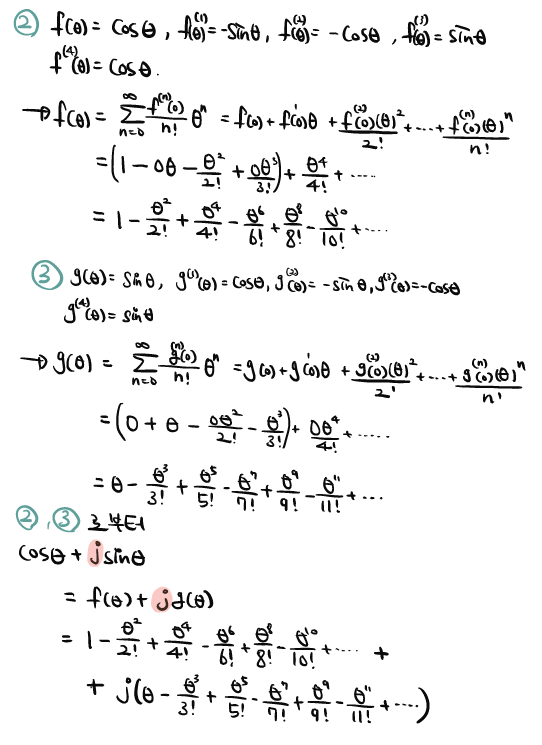 ② f(θ) = cosθ, f⁽¹⁾(θ) = -sinθ, f⁽²⁾(θ) = -cosθ, f⁽³⁾(θ) = sinθ
f⁽⁴⁾(θ) = cosθ.
→ f(θ) = ∑_{n=0}^{∞} f⁽ⁿ⁾(0)/n! θⁿ = f(0) + f'(0)θ + f⁽²⁾(0)(θ)²/2! + ⋯ + f⁽ⁿ⁾(0)(θ)ⁿ/n!
= (1 - 0θ - θ²/2! + 0θ³/3!) + θ⁴/4! + ⋯
= 1 - θ²/2! + θ⁴/4! - θ⁶/6! + θ⁸/8! - θ¹⁰/10! + ⋯
③ g(θ) = sinθ, g⁽¹⁾(θ) = cosθ, g⁽²⁾(θ) = -sinθ, g⁽³⁾(θ) = -cosθ
g⁽⁴⁾(θ) = sinθ
→ g(θ) = ∑_{n=0}^{∞} g⁽ⁿ⁾(0)/n! θⁿ = g(0) + g'(0)θ + g⁽²⁾(0)(θ)²/2! + ⋯ + g⁽ⁿ⁾(0)(θ)ⁿ/n!
= (0 + θ - 0θ²/2! - θ³/3!) + 0θ⁴/4! + ⋯
= θ - θ³/3! + θ⁵/5! - θ⁷/7! + θ⁹/9! - θ¹¹/11! + ⋯
②, ③ 로부터
cosθ + jsinθ
= f(θ) + jg(θ)
= 1 - θ²/2! + θ⁴/4! - θ⁶/6! + θ⁸/8! - θ¹⁰/10! + ⋯ +
+ j(θ - θ³/3! + θ⁵/5! - θ⁷/7! + θ⁹/9! - θ¹¹/11! + ⋯)